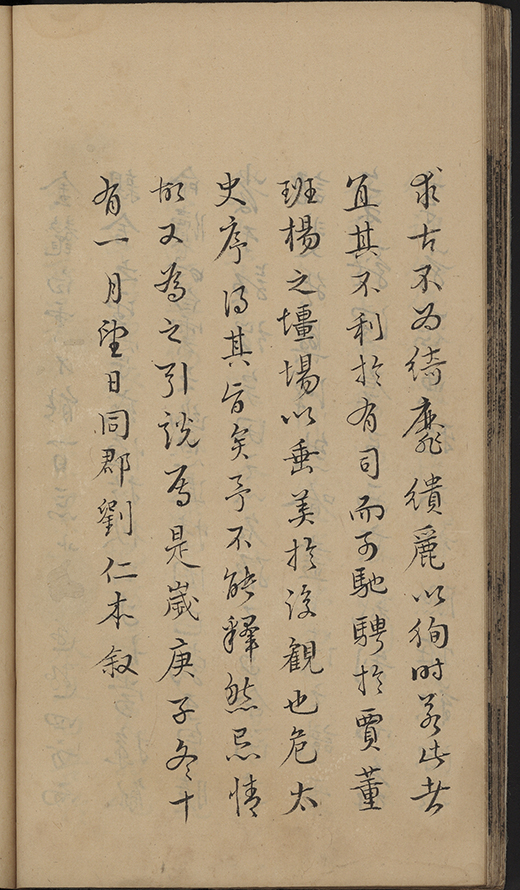 求古不为绮靡缋麗以狥时若此者
宜其不利扵有司而可馳騁扵賈董
班楊之壇場以垂美扵後観也危太
史序得其旨矣予不能釋然忘情
故又為之引說焉是嵗庚子冬十
有一月望日同郡劉仁本叙